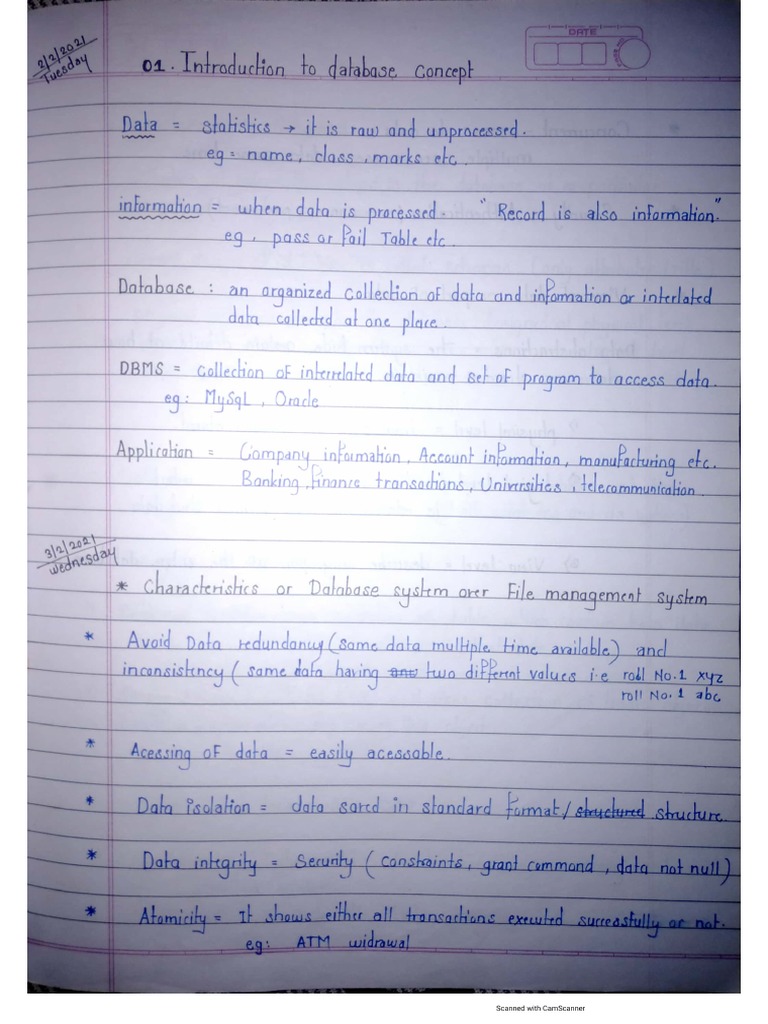 2/2/2021
Tuesday
DATE
01. Introduction to database concept
Data = statistics → it is raw and unprocessed.
eg = name, class, marks etc.
information = when data is processed. "Record is also information."
eg. pass or fail Table etc.
Database : an organized collection of data and information or interlated
data collected at one place.
DBMS = collection of interrelated data and set of program to access data.
eg: MySqL, Oracle
Application = Company information, Account information, manufacturing etc.
Banking, finance transactions, Universities, telecommunication.
3/2/2021
Wednesday
* Characteristics or Database system over File management system
* Avoid Data redundancy (same data multiple time available) and
inconsistency ( same data having two different values i.e roll No.1 xyz
roll No.1 abc
* Acessing of data = easily acessable.
* Data isolation = data sared in standard format / structured structure.
* Data integrity = Security ( constraints, grant command, data not null)
* Atomicity = It shows either all transactions executed successfully or not.
eg: ATM widrawal
Scanned with CamScanner